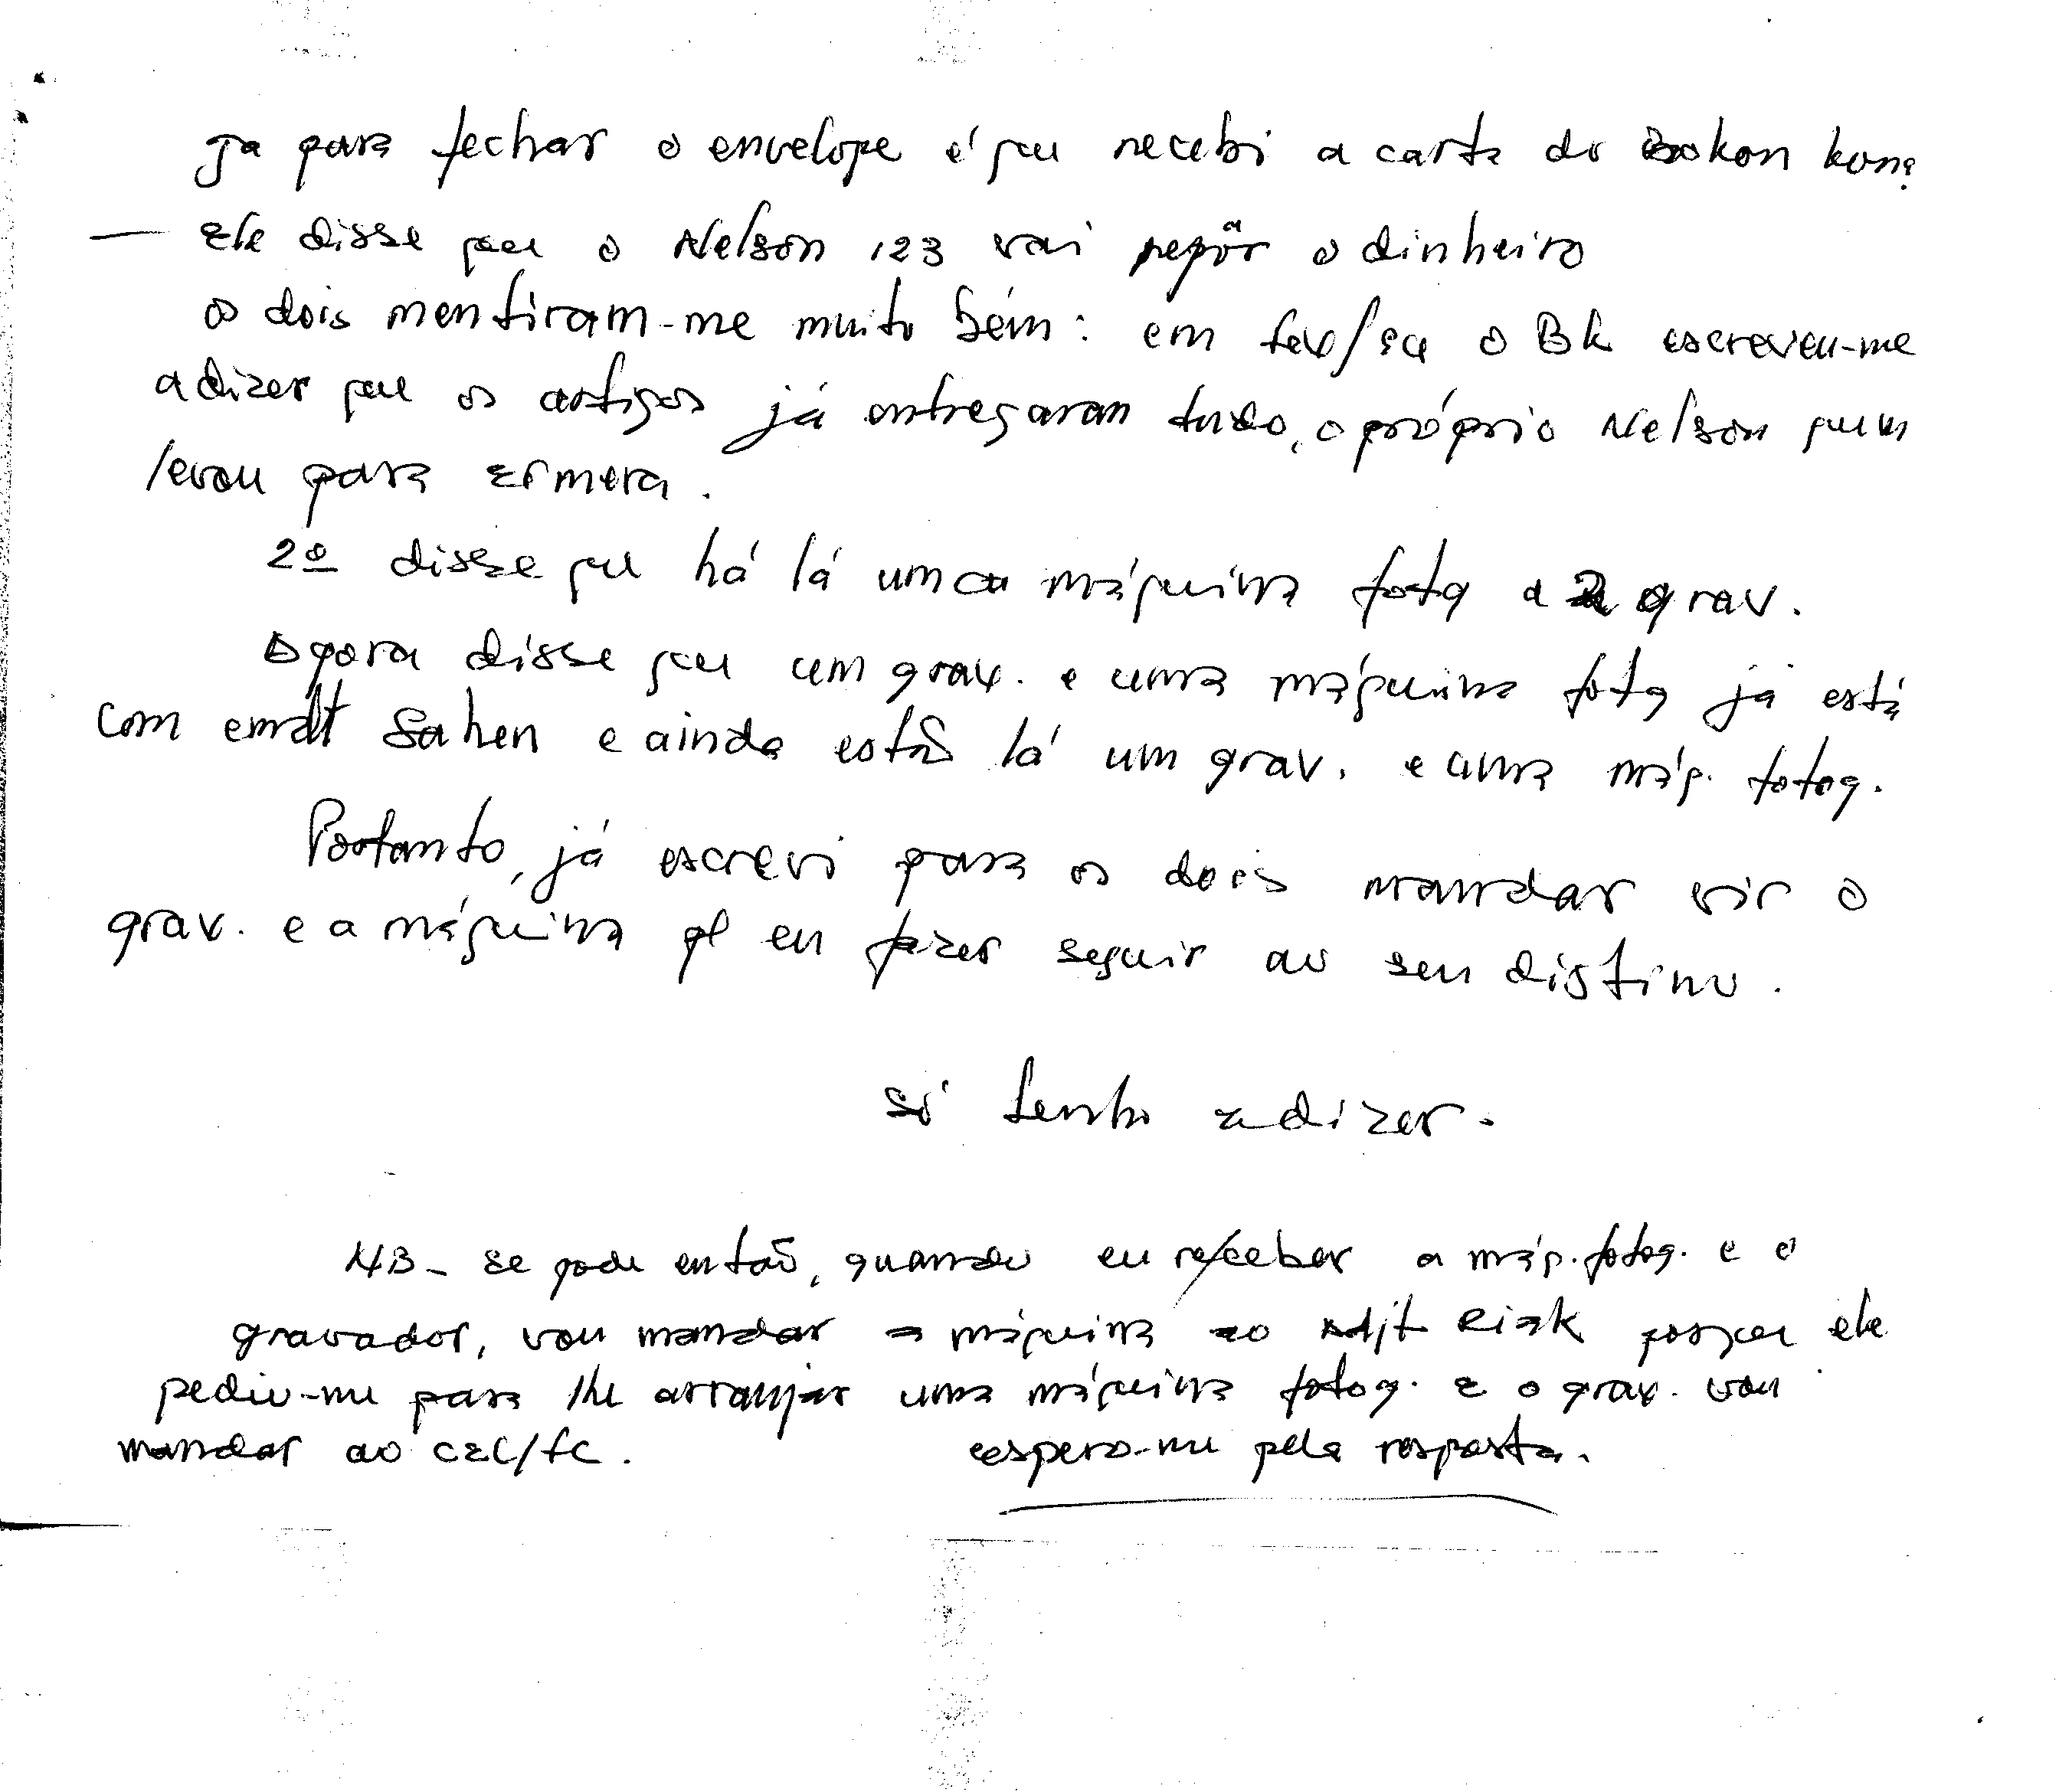 Ja para fechar o envelope é que recebi a carta do Bokon kon:
— Ele disse que o Nelson 123 vai repôr o dinheiro
os dois mentiram-me muito bém: em fev/94 o BK escreveu-me
a dizer que os artigos já entregaram tudo, o próprio Nelson quem
levou para Ermera.
2º disse que há lá uma máquina fotg a 2 grav.
Agora disse que um grav. e uma máquina fotg já está
com emdt Sahen e ainda estão lá um grav. e uma máq. fotog.
Portanto, já escrevi para os dois mandar vir o
grav. e a máquina pª eu fazer seguir ao seu distino.
Só tenho a dizer.
NB - Se pode então, quando eu receber a máq. fotog. e o
gravador, vou mandar a máquina ao Adjt Riak porque ele
pediu-me para lhe arranjar uma máquina fotog. e o grav. vou
mandar ao CEL/FC. espero-me pela resposta.